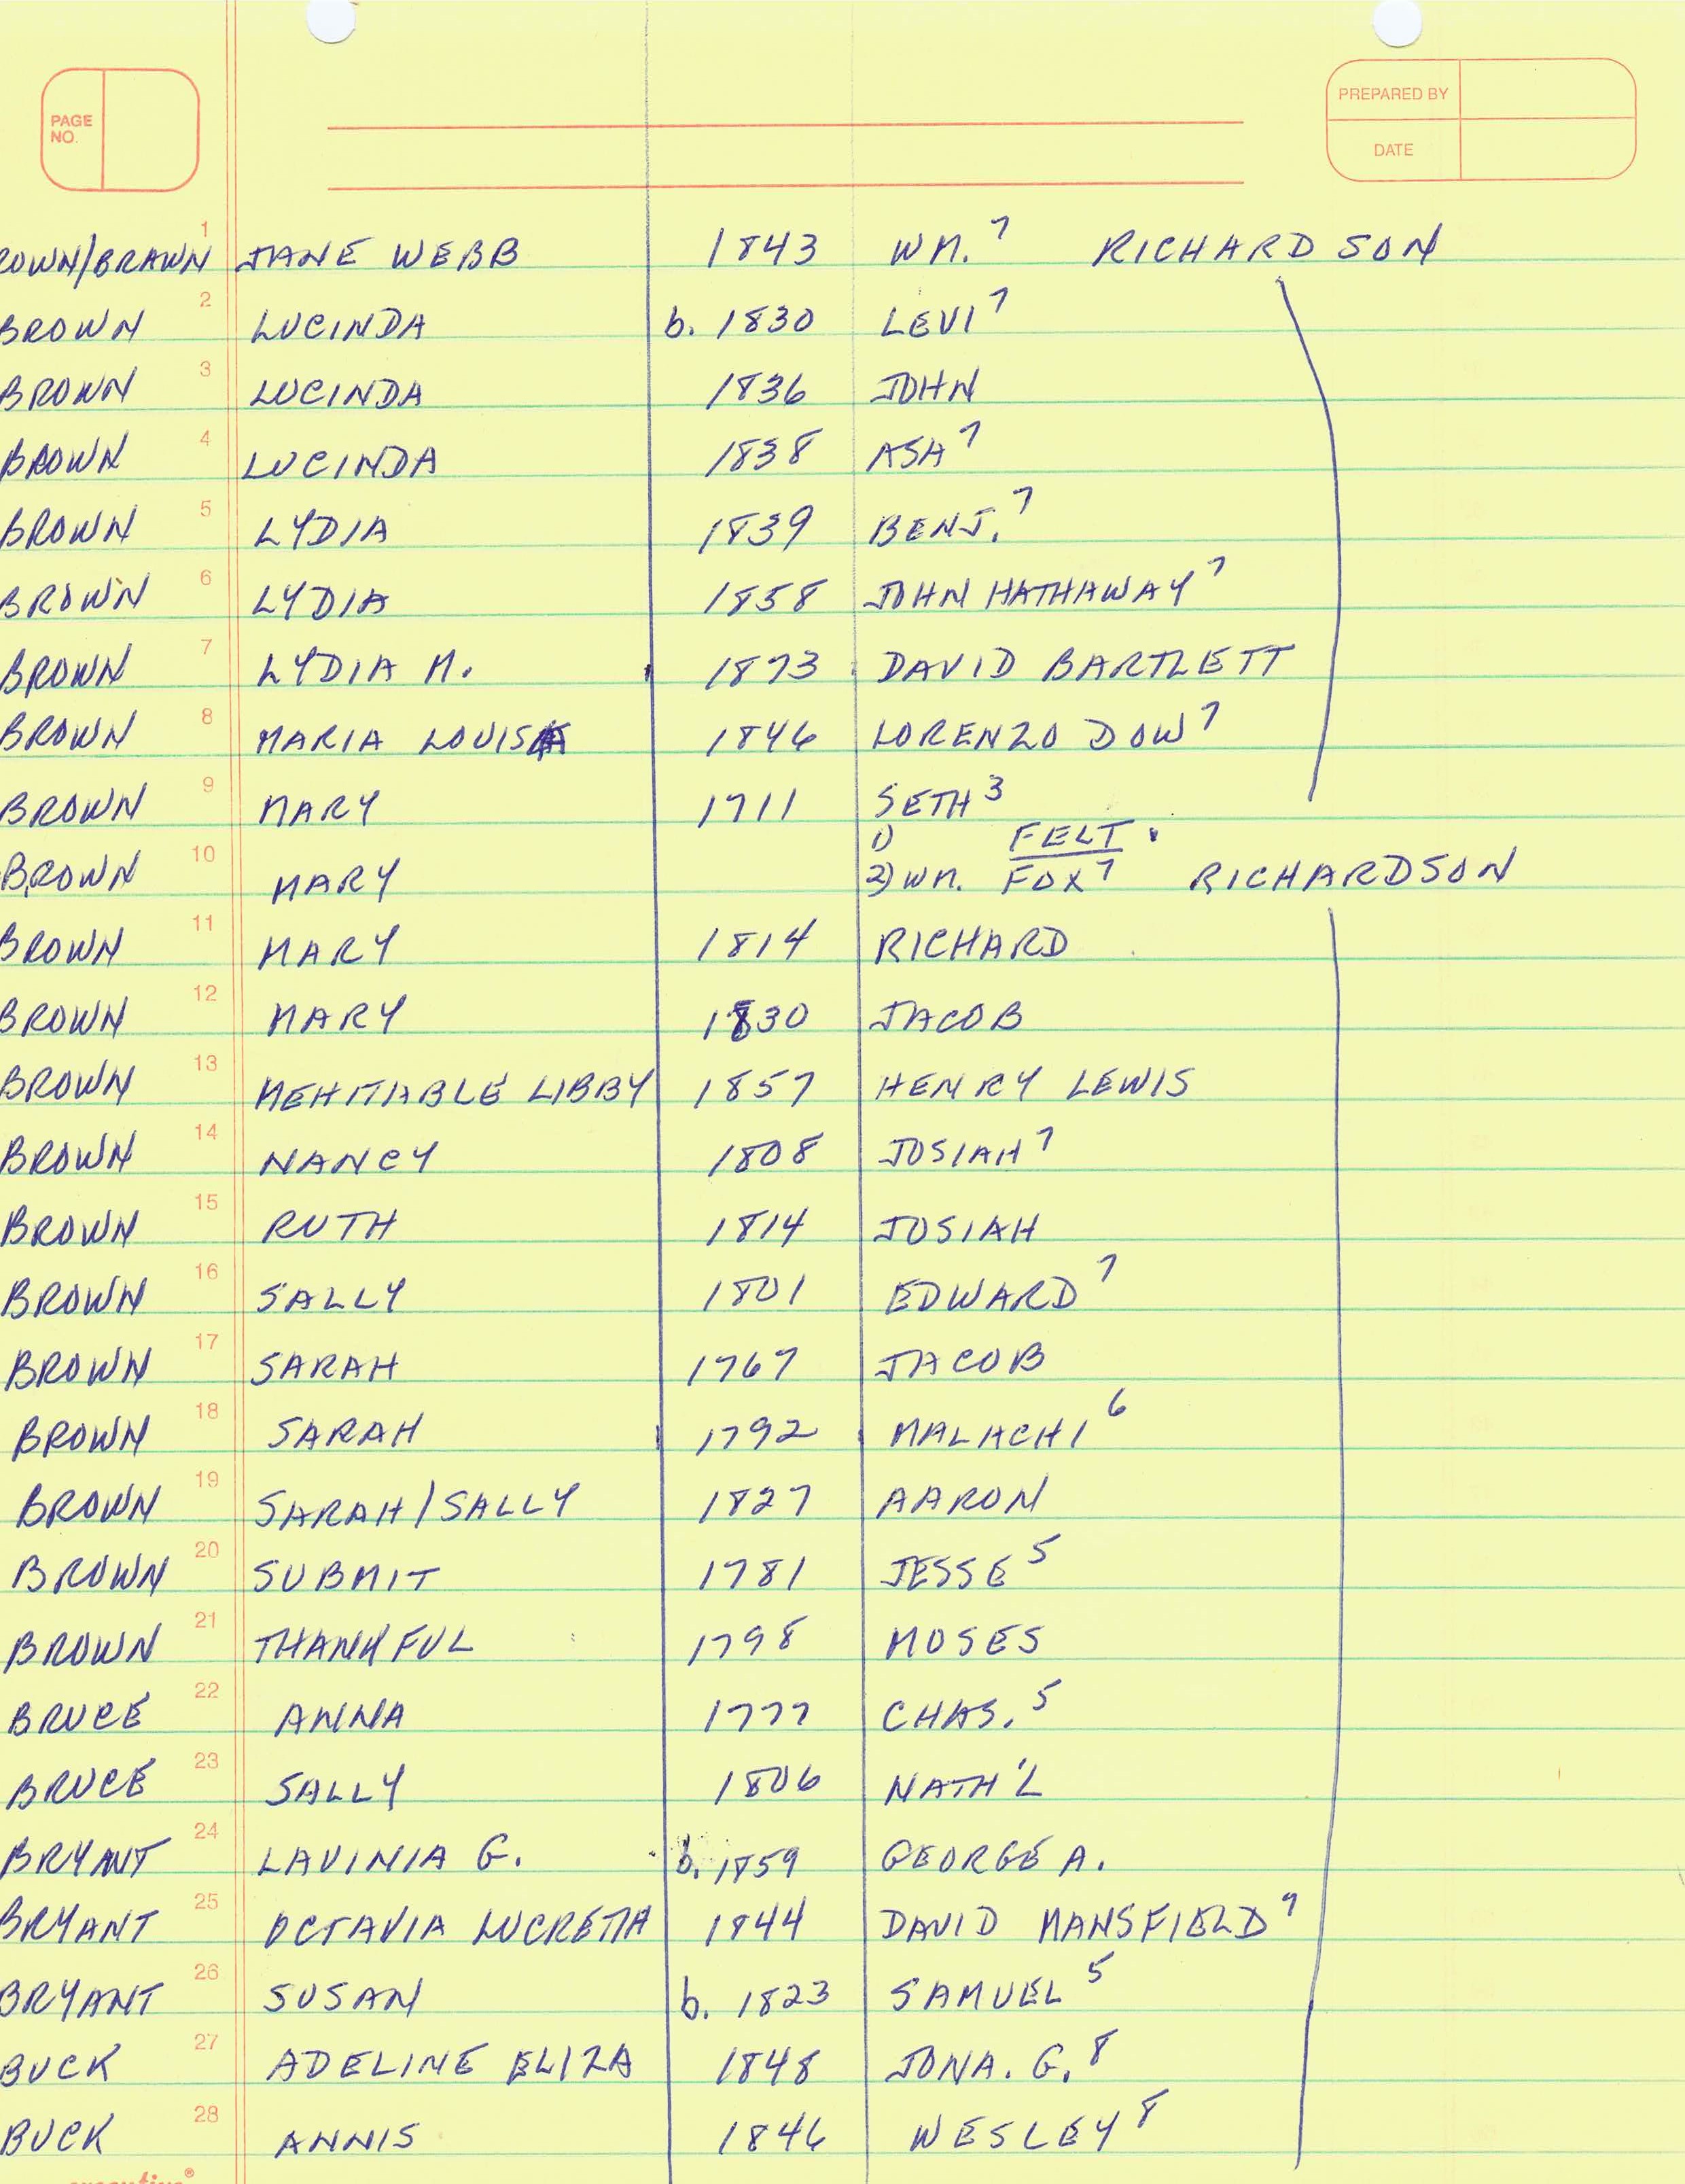 PAGE NO.
PREPARED BY
DATE
1 OWN/BRAWN JANE WEBB 1843 WM.7 RICHARDSON
2 BROWN LUCINDA b. 1830 LEVI7
3 BROWN LUCINDA 1836 JOHN
4 BROWN LUCINDA 1838 ASA7
5 BROWN LYDIA 1839 BENJ.7
6 BROWN LYDIA 1858 JOHN HATHAWAY7
7 BROWN LYDIA M. 1873 DAVID BARTLETT
8 BROWN MARIA LOUISA 1846 LORENZO DOW7
9 BROWN MARY 1711 SETH3
1) FELT
10 BROWN MARY 2) WM. FOX7 RICHARDSON
11 BROWN MARY 1814 RICHARD
12 BROWN MARY 1830 JACOB
13 BROWN MEHITABLE LIBBY 1857 HENRY LEWIS
14 BROWN NANCY 1808 JOSIAH7
15 BROWN RUTH 1814 JOSIAH
16 BROWN SALLY 1801 EDWARD7
17 BROWN SARAH 1767 JACOB
18 BROWN SARAH 1792 MALACHI6
19 BROWN SARAH/SALLY 1827 AARON
20 BROWN SUBMIT 1781 JESSE5
21 BROWN THANKFUL 1798 MOSES
22 BRUCE ANNA 1777 CHAS.5
23 BRUCE SALLY 1806 NATH'L
24 BRYANT LAVINIA G. b. 1859 GEORGE A.
25 BRYANT OCTAVIA LUCRETIA 1844 DAVID MANSFIELD9
26 BRYANT SUSAN b. 1823 SAMUEL5
27 BUCK ADELINE ELIZA 1848 JONA. G.8
28 BUCK ANNIS 1846 WESLEY8